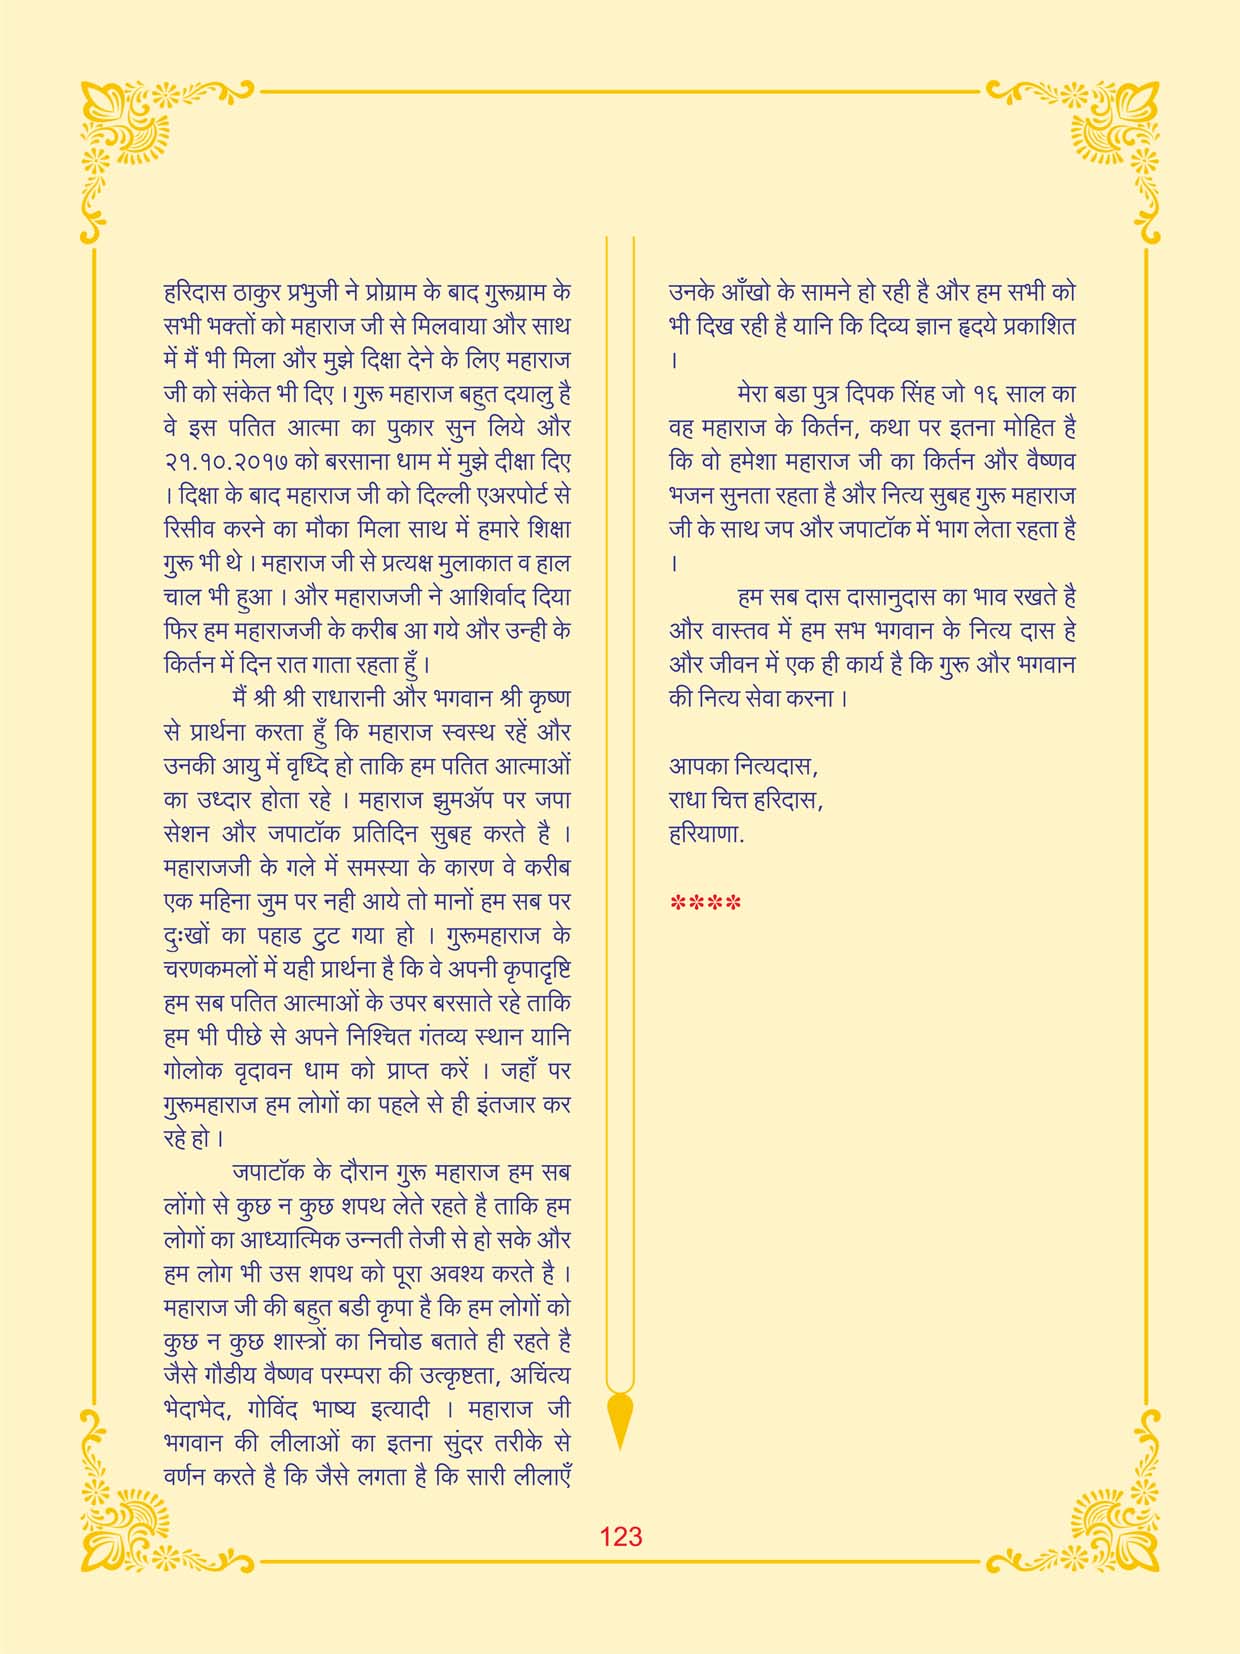 हरिदास ठाकुर प्रभुजी ने प्रोग्राम के बाद गुरूग्राम के
सभी भक्तों को महाराज जी से मिलवाया और साथ
में मैं भी मिला और मुझे दिक्षा देने के लिए महाराज
जी को संकेत भी दिए । गुरू महाराज बहुत दयालु है
वे इस पतित आत्मा का पुकार सुन लिये और
२१.१०.२०१७ को बरसाना धाम में मुझे दीक्षा दिए
। दिक्षा के बाद महाराज जी को दिल्ली एअरपोर्ट से
रिसीव करने का मौका मिला साथ में हमारे शिक्षा
गुरू भी थे । महाराज जी से प्रत्यक्ष मुलाकात व हाल
चाल भी हुआ । और महाराजजी ने आशिर्वाद दिया
फिर हम महाराजजी के करीब आ गये और उन्ही के
किर्तन में दिन रात गाता रहता हुँ ।
मैं श्री श्री राधारानी और भगवान श्री कृष्ण
से प्रार्थना करता हुँ कि महाराज स्वस्थ रहें और
उनकी आयु में वृध्दि हो ताकि हम पतित आत्माओं
का उध्दार होता रहे । महाराज झुमॲप पर जपा
सेशन और जपाटॉक प्रतिदिन सुबह करते है ।
महाराजजी के गले में समस्या के कारण वे करीब
एक महिना जुम पर नही आये तो मानों हम सब पर
दुःखों का पहाड टुट गया हो । गुरूमहाराज के
चरणकमलों में यही प्रार्थना है कि वे अपनी कृपादृष्टि
हम सब पतित आत्माओं के उपर बरसाते रहे ताकि
हम भी पीछे से अपने निश्चित गंतव्य स्थान यानि
गोलोक वृदावन धाम को प्राप्त करें । जहाँ पर
गुरूमहाराज हम लोगों का पहले से ही इंतजार कर
रहे हो ।
जपाटॉक के दौरान गुरू महाराज हम सब
लोंगो से कुछ न कुछ शपथ लेते रहते है ताकि हम
लोगों का आध्यात्मिक उन्नती तेजी से हो सके और
हम लोग भी उस शपथ को पूरा अवश्य करते है ।
महाराज जी की बहुत बडी कृपा है कि हम लोगों को
कुछ न कुछ शास्त्रों का निचोड बताते ही रहते है
जैसे गौडीय वैष्णव परम्परा की उत्कृष्टता, अचिंत्य
भेदाभेद, गोविंद भाष्य इत्यादी । महाराज जी
भगवान की लीलाओं का इतना सुंदर तरीके से
वर्णन करते है कि जैसे लगता है कि सारी लीलाएँ
उनके आँखो के सामने हो रही है और हम सभी को
भी दिख रही है यानि कि दिव्य ज्ञान हृदये प्रकाशित
।
मेरा बडा पुत्र दिपक सिंह जो १६ साल का
वह महाराज के किर्तन, कथा पर इतना मोहित है
कि वो हमेशा महाराज जी का किर्तन और वैष्णव
भजन सुनता रहता है और नित्य सुबह गुरू महाराज
जी के साथ जप और जपाटॉक में भाग लेता रहता है
।
हम सब दास दासानुदास का भाव रखते है
और वास्तव में हम सभ भगवान के नित्य दास हे
और जीवन में एक ही कार्य है कि गुरू और भगवान
की नित्य सेवा करना ।
आपका नित्यदास,
राधा चित्त हरिदास,
हरियाणा.
****
123